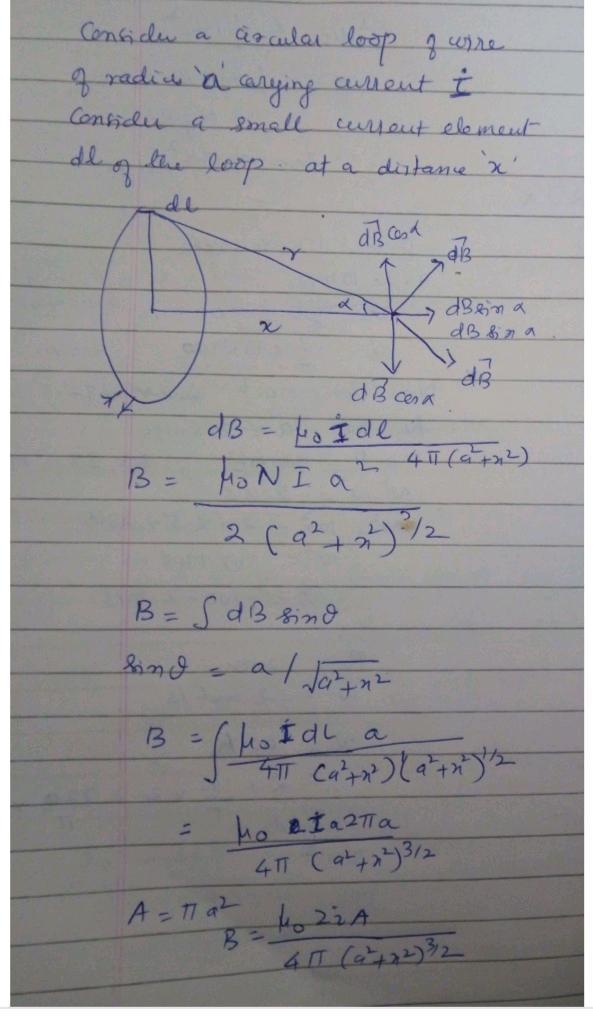 Consider a circular loop of wire
of radius 'a' carying current I
Consider a small current element
dl of the loop. at a distance 'x'
dl
r
dB⃗ cosα
dB⃗
α
dB sin α
dB sin α
x
dB⃗
dB⃗ cosα
dB = μ₀ I dl / 4π(a²+x²)
B = μ₀ N I a² / 2 (a²+x²)^3/2
B = ∫ dB sinθ
sinθ = a / √(a²+x²)
B = ∫ μ₀ I dL a / 4π (a²+x²)(a²+x²)^1/2
= μ₀ I a 2πa / 4π (a²+x²)^3/2
A = πa²
B = μ₀ 2iA / 4π (a²+x²)^3/2